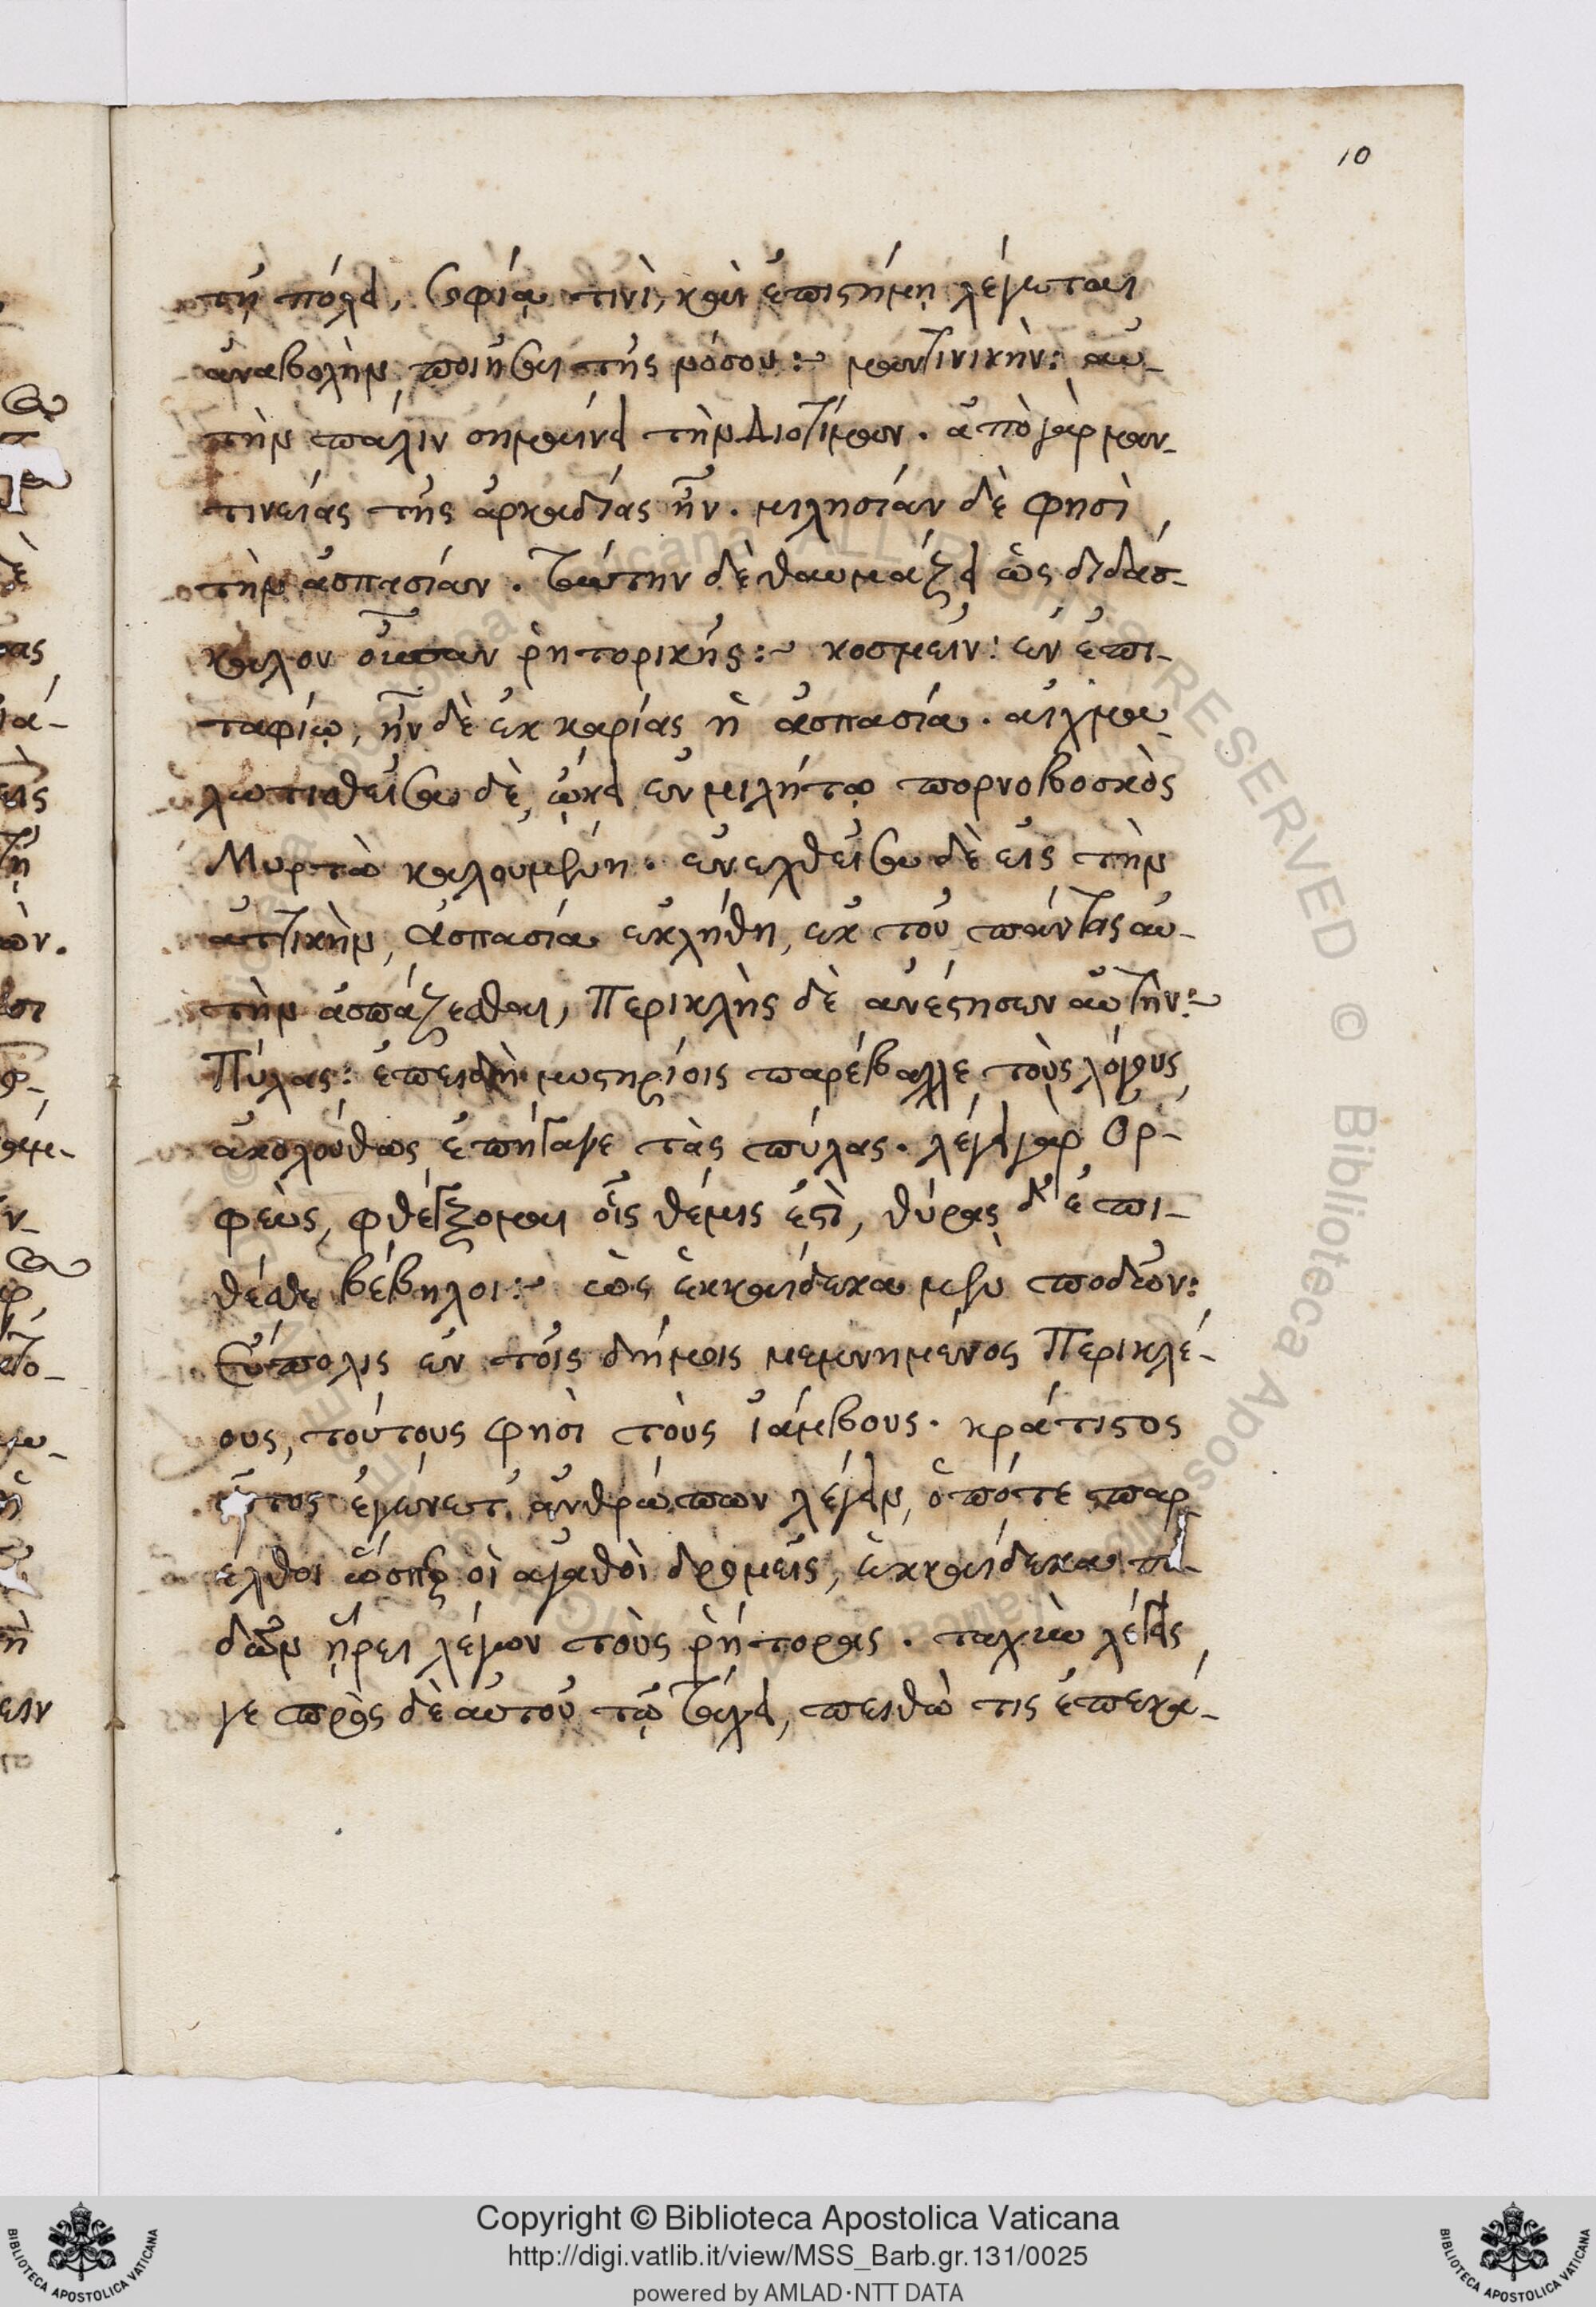 10
τῆ πόλει, σοφίᾳ τινὶ, καὶ ἐπιστήμῃ λέγεται
ἀναβολὴν ποιῆσαι τῆς νόσου :~ μαντινικὴν: αὐ-
τὴν πάλιν σημαίνει τὴν Διοτίμαν. ἀπὸ γὰρ μαν-
τινείας τῆς ἀρκαδίας ἦν. μιλησίαν δὲ φησὶ
τὴν ἀσπασίαν. ταύτην δὲ θαυμάζει ὡς διδάσ-
καλον οὖσαν ῥητορικῆς :~ κοσμεῖν: ἐν ἐπι-
ταφίῳ, ἦν δὲ ἐκ καρίας ἡ ἀσπασία. αἰχμα-
λωτισθεῖσα δὲ, ᾤκει ἐν μιλήτῳ πορνοβοσκὸς
Μυρτὼ καλουμένη. ἐνελθεῖσα δὲ εἰς τὴν
ἀττικὴν, ἀσπασία ἐκλήθη, ἐκ τοῦ πάντας αὐ-
τὴν ἀσπάζεσθαι, Περικλῆς δὲ ἀνέστησεν αὐτήν :~
Πύλας: ἐπειδὴ μυστηρίοις παρέβαλλε τοὺς λόγους,
ἀκολούθως ἐπήγαγε τὰς πύλας. λέγει γὰρ Ορ-
φεὺς, φθέγξομαι οἷς θέμις ἐστὶ, θύρας δ' ἐπι-
θέσθε βέβηλοι :~ ὡς ἑκκαίδεκα μὲν ποδῶν:
Εὔπολις ἐν τοῖς δήμοις μεμνημένος Περικλέ-
ους, τούτους φησὶ τοὺς ἰάμβους. κράτιστος
οὗτος ἐγένετ' ἀνθρώπων λέγειν, ὁπότε παρ-
έλθοι ὥσπερ οἱ ἀγαθοὶ δρομεῖς, ἑκκαίδεκα πο-
δῶν ᾕρει λέγων τοὺς ῥήτορας. ταχὺ λέγεις
γε πρὸς δὲ αὐτοῦ τῷ τάχει, πειθώ τις ἐπεκά-
Copyright © Biblioteca Apostolica Vaticana
http://digi.vatlib.it/view/MSS_Barb.gr.131/0025
powered by AMLAD·NTT DATA